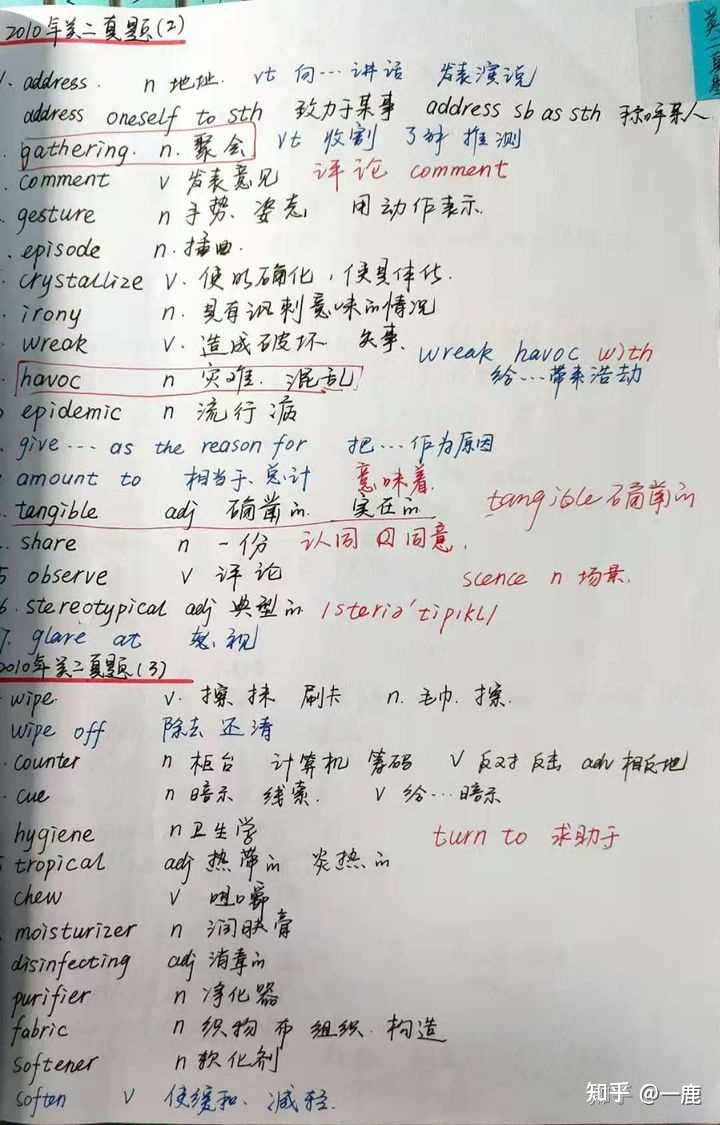 2010年英二真题(2)
英一真题
1. address. n 地址. vt 向…讲话 发表演说
address oneself to sth 致力于某事 address sb as sth 称呼某人
. gathering. n. 聚会 vt 收割 了解 推测
. comment v 发表意见 评论 comment
. gesture n 手势. 姿态 用动作表示.
. episode n. 插曲.
crystallize v. 使明确化, 使具体化.
. irony n. 具有讽刺意味的情况
. wreak v. 造成破坏 失事.
wreak havoc with
. havoc n 灾难. 混乱 给…带来浩劫
epidemic n 流行病
. give … as the reason for 把…作为原因
amount to 相当于、总计 意味着.
. tangible adj 确凿的. 实在的 tangible 确凿的
. share n 一份 认同 同意.
5 observe v 评论 scence n 场景.
6. stereotypical adj 典型的 /steriə'tipikl/
7. glare at 怒视
2010年英二真题(3)
. wipe. v. 擦 抹 刷卡 n. 毛巾. 擦.
wipe off 除去 还清
. counter n 柜台 计算机 筹码 v 反对 反击 adv 相反地
. cue n 暗示 线索. v 给…暗示
hygiene n 卫生学 turn to 求助于
tropical adj 热带的 炎热的
chew v 咀嚼
. moisturizer n 润肤膏
disinfecting adj 消毒的
purifier n 净化器
fabric n 织物 布 组织. 构造
softener n 软化剂
soften v 使缓和. 减轻.
知乎 @一鹿